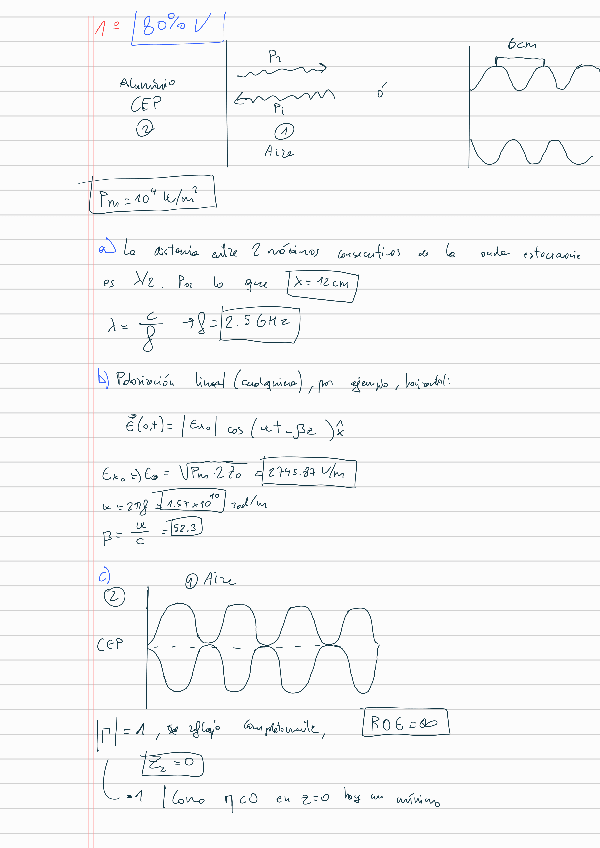 1º 80% V
6cm
Pr
Aluminio
CEP
②
Pi
ó
①
Aire
Pm = 10⁴ W/m²
a) La distancia entre 2 máximos consecutivos de la onda estacionaria
es λ/2. Por lo que λ = 12cm
λ = c/f → f = 2.5 GHz
b) Polarización lineal (cualquiera), por ejemplo, horizontal:
E⃗(0,t) = |Ex₀| cos (ωt - βz) x̂
Ex₀ = √Pm·2Z₀ = 2745.87 V/m
ω = 2πf = 1.57×10¹⁰ rad/m
β = ω/c = 52.3
c) ① Aire
②
CEP
|Γ| = 1, se reflejo completamente, ROE = ∞
Z₂ = 0
-1 | Como η<0 en z=0 hay un mínimo